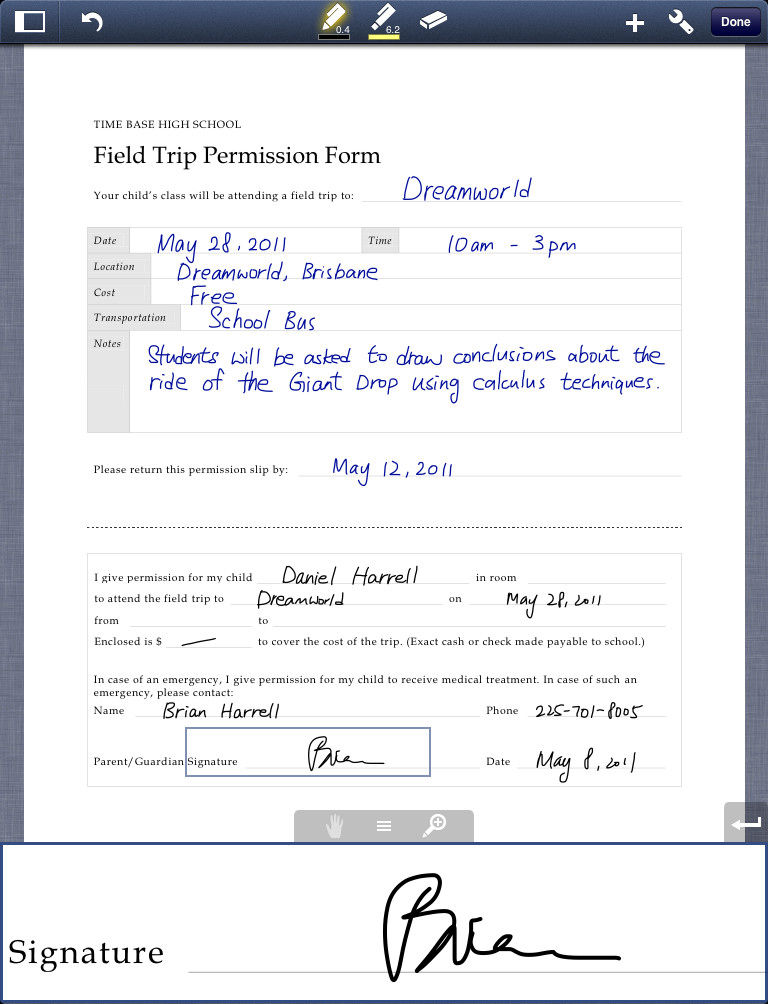 0.4
6.2
Done
TIME BASE HIGH SCHOOL
Field Trip Permission Form
Your child's class will be attending a field trip to: Dreamworld
Date May 28, 2011 Time 10am - 3pm
Location Dreamworld, Brisbane
Cost Free
Transportation School Bus
Notes Students will be asked to draw conclusions about the
ride of the Giant Drop using calculus techniques.
Please return this permission slip by: May 12, 2011
I give permission for my child Daniel Harrell in room
to attend the field trip to Dreamworld on May 28, 2011
from to
Enclosed is $ — to cover the cost of the trip. (Exact cash or check made payable to school.)
In case of an emergency, I give permission for my child to receive medical treatment. In case of such an
emergency, please contact:
Name Brian Harrell Phone 225-701-8005
Parent/Guardian Signature Brian Date May 8, 2011
Signature Brian